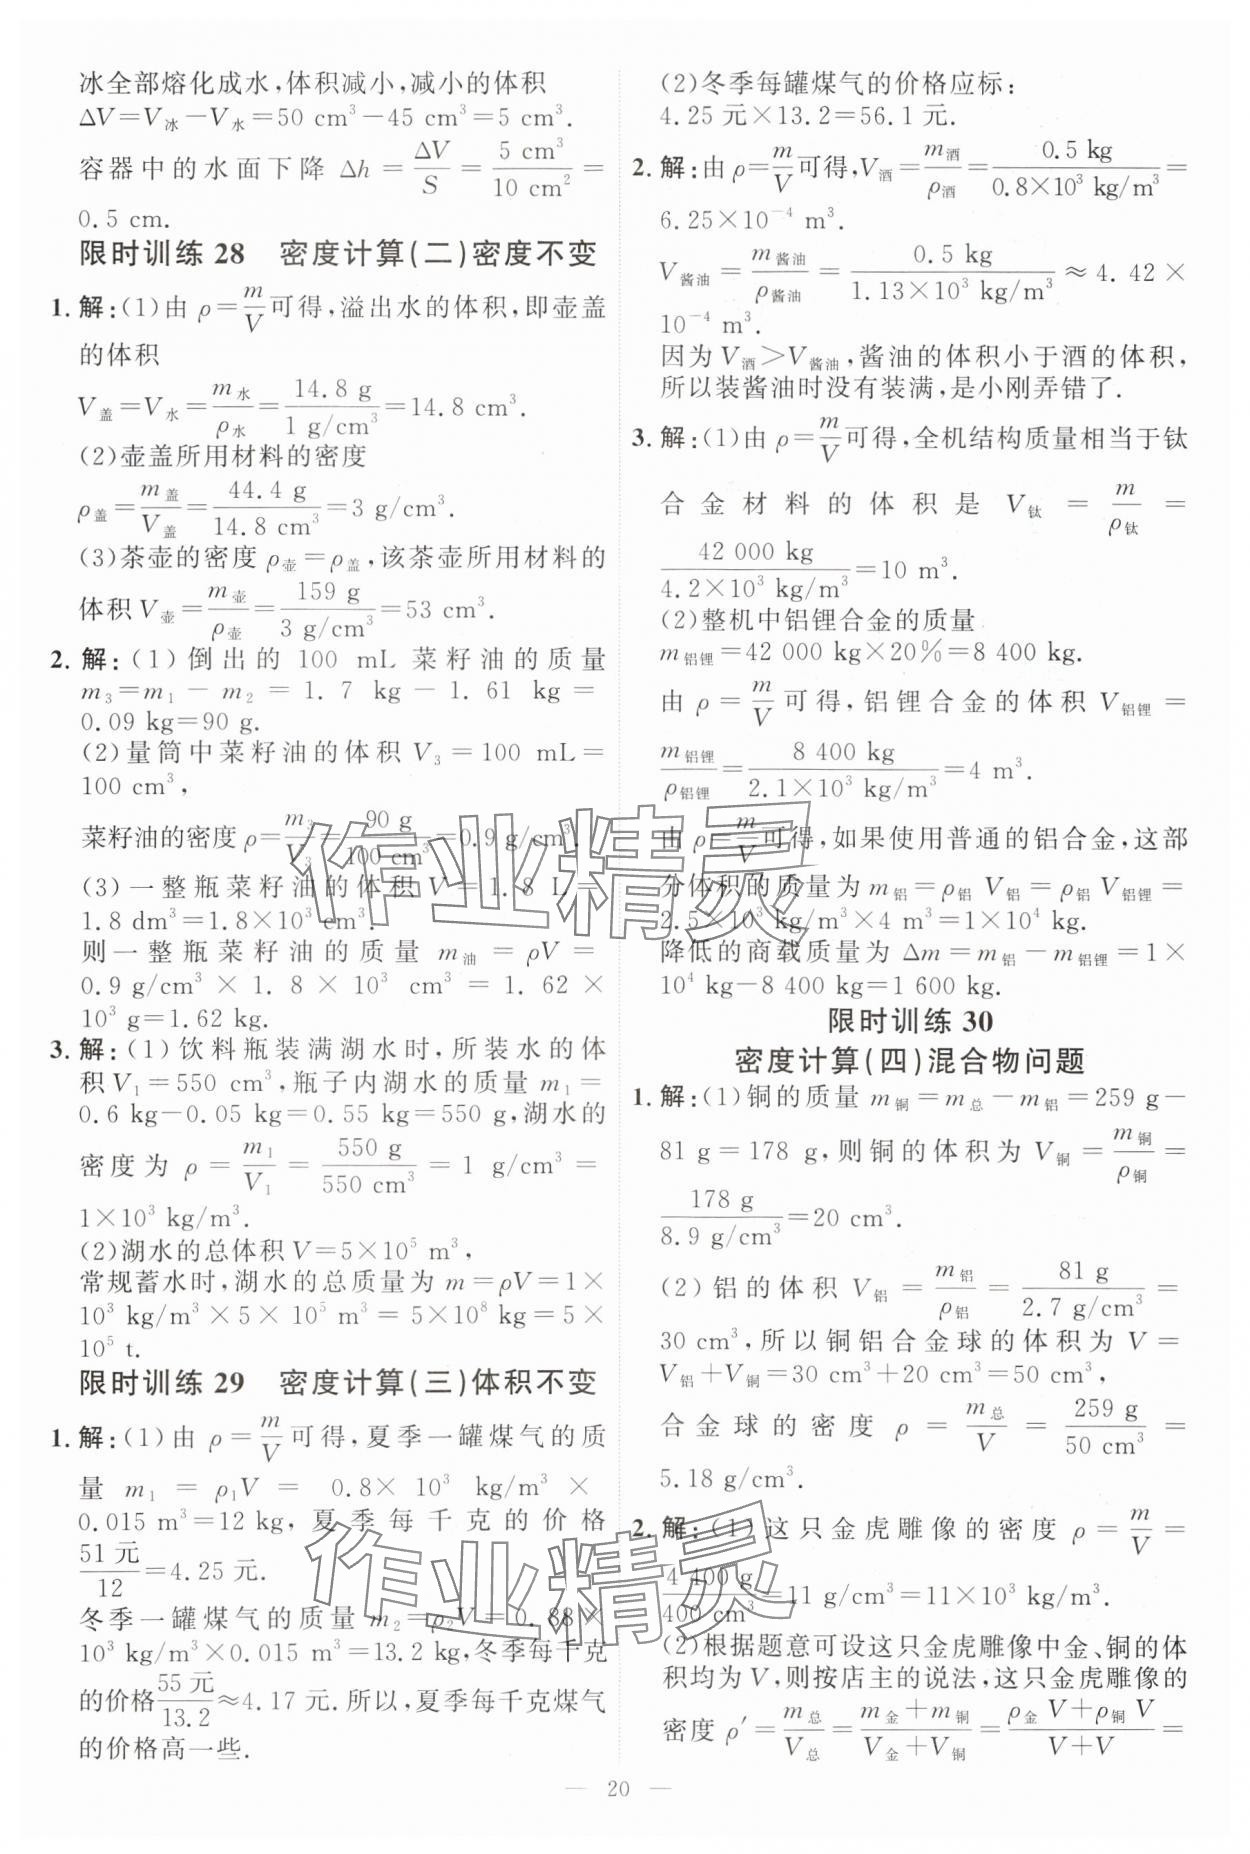 冰全部熔化成水,体积减小,减小的体积
ΔV=V冰-V水=50 cm³-45 cm³=5 cm³.
容器中的水面下降 Δh=ΔV/S=5 cm³/10 cm²=
0.5 cm.
限时训练 28 密度计算(二)密度不变
1. 解:(1)由 ρ=m/V可得,溢出水的体积,即壶盖
的体积
V盖=V水=m水/ρ水=14.8 g/1 g/cm³=14.8 cm³.
(2)壶盖所用材料的密度
ρ盖=m盖/V盖=44.4 g/14.8 cm³=3 g/cm³.
(3)茶壶的密度 ρ壶=ρ盖,该茶壶所用材料的
体积 V壶=m壶/ρ壶=159 g/3 g/cm³=53 cm³.
2. 解:(1)倒出的 100 mL 菜籽油的质量
m₃=m₁-m₂=1.7 kg-1.61 kg=
0.09 kg=90 g.
(2)量筒中菜籽油的体积 V₃=100 mL=
100 cm³,
菜籽油的密度 ρ=m₃/V₃=90 g/100 cm³=0.9 g/cm³.
(3)一整瓶菜籽油的体积 V=1.8 L=
1.8 dm³=1.8×10³ cm³.
则一整瓶菜籽油的质量 m油=ρV=
0.9 g/cm³×1.8×10³ cm³=1.62×
10³ g=1.62 kg.
3. 解:(1)饮料瓶装满湖水时,所装水的体
积 V₁=550 cm³,瓶子内湖水的质量 m₁=
0.6 kg-0.05 kg=0.55 kg=550 g,湖水的
密度为 ρ=m₁/V₁=550 g/550 cm³=1 g/cm³=
1×10³ kg/m³.
(2)湖水的总体积 V=5×10⁵ m³,
常规蓄水时,湖水的总质量为 m=ρV=1×
10³ kg/m³×5×10⁵ m³=5×10⁸ kg=5×
10⁵ t.
限时训练 29 密度计算(三)体积不变
1. 解:(1)由 ρ=m/V可得,夏季一罐煤气的质
量 m₁=ρ₁V=0.8×10³ kg/m³×
0.015 m³=12 kg,夏季每千克的价格
51 元/12=4.25 元.
冬季一罐煤气的质量 m₂=ρ₂V=0.88×
10³ kg/m³×0.015 m³=13.2 kg,冬季每千克
的价格55 元/13.2≈4.17 元.所以,夏季每千克煤气
的价格高一些.
(2)冬季每罐煤气的价格应标:
4.25 元×13.2=56.1 元.
2. 解:由 ρ=m/V可得,V酒=m酒/ρ酒=0.5 kg/0.8×10³ kg/m³=
6.25×10⁻⁴ m³.
V酱油=m酱油/ρ酱油=0.5 kg/1.13×10³ kg/m³≈4.42×
10⁻⁴ m³.
因为 V酒>V酱油,酱油的体积小于酒的体积,
所以装酱油时没有装满,是小刚弄错了.
3. 解:(1)由 ρ=m/V可得,全机结构质量相当于钛
合金材料的体积是 V钛=m/ρ钛=
42 000 kg/4.2×10³ kg/m³=10 m³.
(2)整机中铝锂合金的质量
m铝锂=42 000 kg×20%=8 400 kg.
由 ρ=m/V可得,铝锂合金的体积 V铝锂=
m铝锂/ρ铝锂=8 400 kg/2.1×10³ kg/m³=4 m³.
由 ρ=m/V可得,如果使用普通的铝合金,这部
分体积的质量为 m铝=ρ铝 V铝=ρ铝 V铝锂=
2.5×10³ kg/m³×4 m³=1×10⁴ kg.
降低的商载质量为 Δm=m铝-m铝锂=1×
10⁴ kg-8 400 kg=1 600 kg.
限时训练 30
密度计算(四)混合物问题
1. 解:(1)铜的质量 m铜=m总-m铝=259 g-
81 g=178 g,则铜的体积为 V铜=m铜/ρ铜=
178 g/8.9 g/cm³=20 cm³.
(2)铝的体积 V铝=m铝/ρ铝=81 g/2.7 g/cm³=
30 cm³,所以铜铝合金球的体积为 V=
V铝+V铜=30 cm³+20 cm³=50 cm³,
合金球的密度 ρ=m总/V=259 g/50 cm³=
5.18 g/cm³.
2. 解:(1)这只金虎雕像的密度 ρ=m/V=
4 400 g/400 cm³=11 g/cm³=11×10³ kg/m³.
(2)根据题意可设这只金虎雕像中金、铜的体
积均为 V,则按店主的说法,这只金虎雕像的
密度 ρ′=m总/V总=m金+m铜/V金+V铜=ρ金 V+ρ铜 V/V+V=
— 20 —
作业精灵
作业精灵